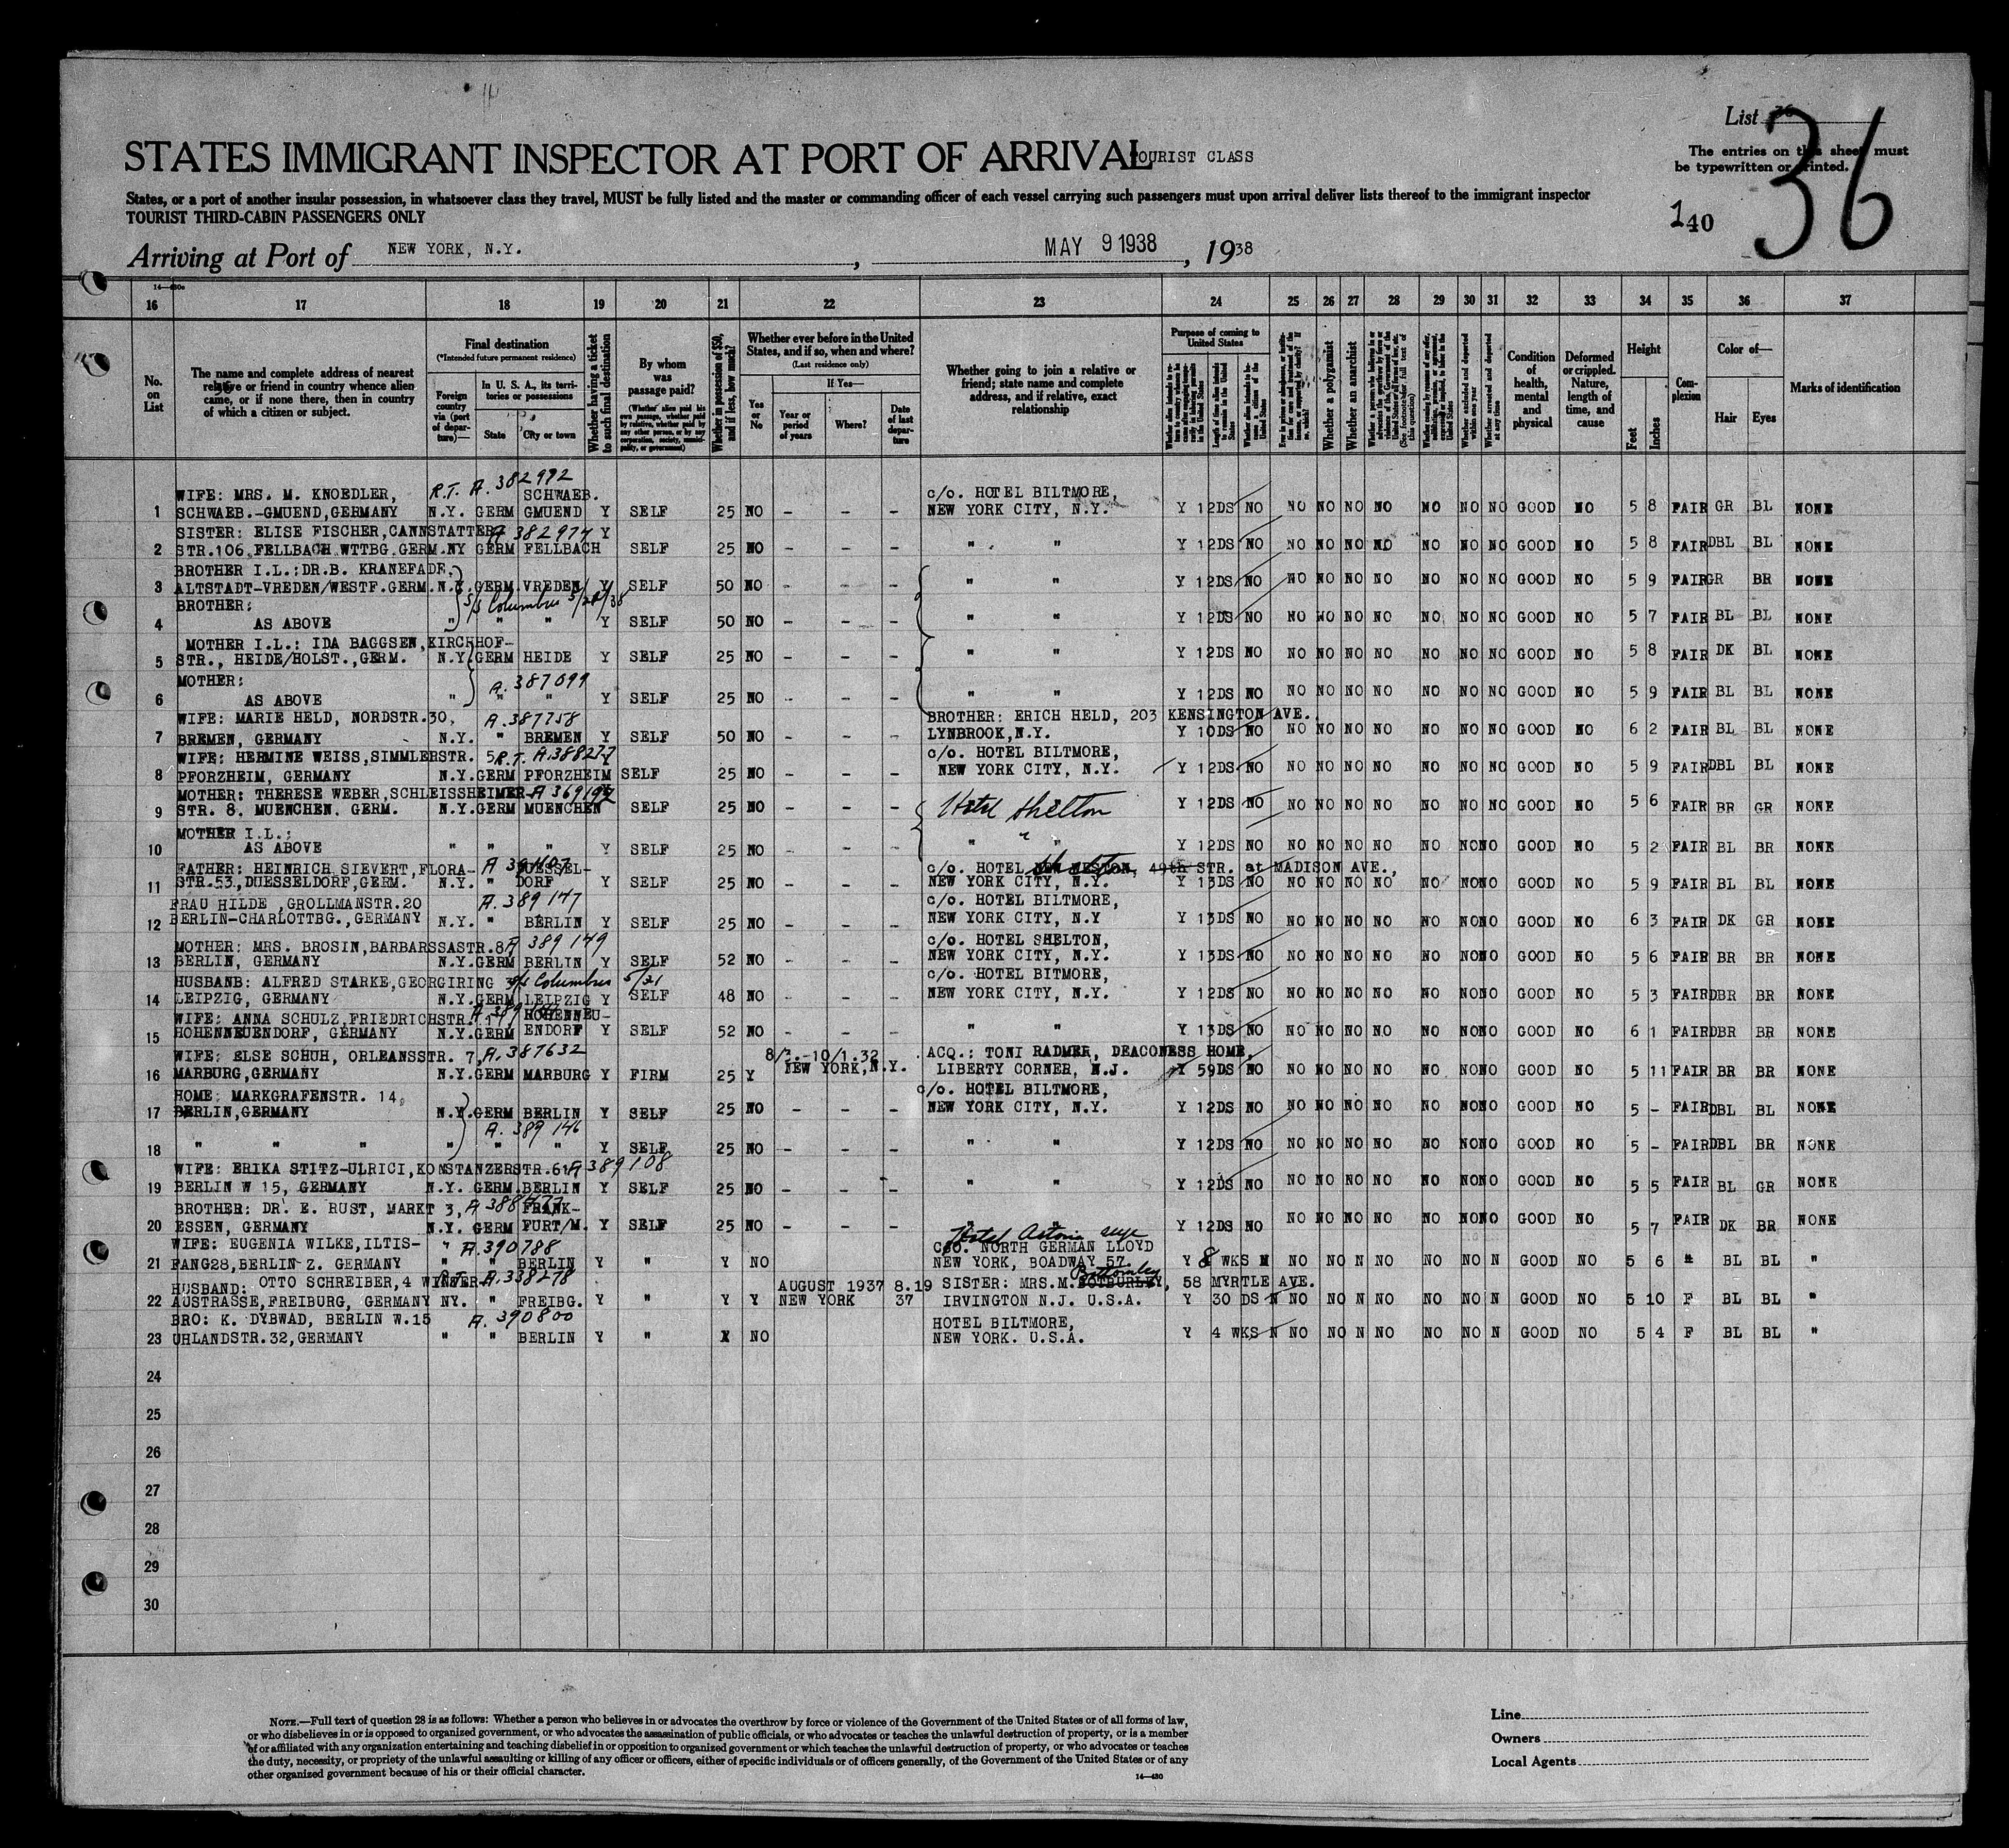 List 36
36
STATES IMMIGRANT INSPECTOR AT PORT OF ARRIVAL
TOURIST CLASS
The entries on this sheet must
be typewritten or printed.
States, or a port of another insular possession, in whatsoever class they travel, MUST be fully listed and the master or commanding officer of each vessel carrying such passengers must upon arrival deliver lists thereof to the immigrant inspector
TOURIST THIRD-CABIN PASSENGERS ONLY
140
Arriving at Port of NEW YORK, N.Y. , MAY 9 1938 , 1938
16 17 18 19 20 21 22 23 24 25 26 27 28 29 30 31 32 33 34 35 36 37
No. on List
The name and complete address of nearest relative or friend in country whence alien came, or if none there, then in country of which a citizen or subject.
Final destination
(*Intended future permanent residence)
Foreign country via (port of departure)—
In U. S. A., its territories or possessions
State
City or town
Whether having a ticket to such final destination
By whom was passage paid?
(Whether alien paid his own passage, whether paid by relative, whether paid by any other person, or by any corporation, society, municipality, or government)
Whether in possession of $50, and if less, how much?
Whether ever before in the United States, and if so, when and where?
(Last residence only)
Yes or No
If Yes—
Year or period of years
Where?
Date of last departure
Whether going to join a relative or friend; state name and complete address, and if relative, exact relationship
Purpose of coming to United States
Whether a polygamist
Whether an anarchist
Condition of health, mental and physical
Deformed or crippled. Nature, length of time, and cause
Height
Feet
Inches
Complexion
Color of—
Hair
Eyes
Marks of identification
WIFE: MRS. M. KNOEDLER, R.T. A.382972 SCHWAEB. c/o. HOTEL BILTMORE,
1 SCHWAEB.-GMUEND,GERMANY N.Y. GERM GMUEND Y SELF 25 NO - - - NEW YORK CITY, N.Y. Y 12DS NO NO NO NO NO NO NO NO GOOD NO 5 8 FAIR GR BL NONE
SISTER: ELISE FISCHER,CANNSTATTER A 382974 Y
2 STR.106,FELLBACH WTTBG.GERM.NY GERM FELLBACH SELF 25 NO - - - " " Y 12DS NO NO NO NO NO NO NO NO GOOD NO 5 8 FAIR DBL BL NONE
BROTHER I.L.:DR.B. KRANEFADE,
3 ALTSTADT-VREDEN/WESTF.GERM.N.Y.GERM.VREDEN Y SELF 50 NO - - - " " Y 12DS NO NO NO NO NO NO NO NO GOOD NO 5 9 FAIR GR BR NONE
BROTHER: S/S Columbus
4 AS ABOVE " " " Y SELF 50 NO - - - " " Y 12DS NO NO NO NO NO NO NO NO GOOD NO 5 7 FAIR BL BL NONE
MOTHER I.L.: IDA BAGGSEN,KIRCHHOF-
5 STR., HEIDE/HOLST.,GERM. N.Y.GERM HEIDE Y SELF 25 NO - - - " " Y 12DS NO NO NO NO NO NO NO NO GOOD NO 5 8 FAIR DK BL NONE
MOTHER: A.387099
6 AS ABOVE " " " Y SELF 25 NO - - - " " Y 12DS NO NO NO NO NO NO NO NO GOOD NO 5 9 FAIR BL BL NONE
WIFE: MARIE HELD, NORDSTR.30, A.387758 BROTHER: ERICH HELD, 203 KENSINGTON AVE.
7 BREMEN, GERMANY N.Y. " BREMEN Y SELF 50 NO - - - LYNBROOK,N.Y. Y 10DS NO NO NO NO NO NO NO NO GOOD NO 6 2 FAIR BL BL NONE
WIFE: HERMINE WEISS,SIMMLERSTR. 5 R.T. A.388277 c/o. HOTEL BILTMORE,
8 PFORZHEIM, GERMANY N.Y.GERM PFORZHEIM SELF 25 NO - - - NEW YORK CITY, N.Y. Y 12DS NO NO NO NO NO NO NO NO GOOD NO 5 9 FAIR DBL BL NONE
MOTHER: THERESE WEBER,SCHLEISSHEIMER-
9 STR. 8. MUENCHEN. GERM. N.Y.GERM MUENCHEN SELF 25 NO - - - Hotel Shelton Y 12DS NO NO NO NO NO NO NO NO GOOD NO 5 6 FAIR BR GR NONE
MOTHER I.L.:
10 AS ABOVE " " " Y SELF 25 NO - - - " " Y 12DS NO NO NO NO NO NO NO NO GOOD NO 5 2 FAIR BL BR NONE
FATHER: HEINRICH SIEVERT,FLORA- DUESSEL- c/o. HOTEL 49th STR. at MADISON AVE.,
11 STR.53,DUESSELDORF,GERM. N.Y. " DORF Y SELF 25 NO - - - NEW YORK CITY, N.Y. Y 13DS NO NO NO NO NO NO NO NO GOOD NO 5 9 FAIR BL BL NONE
FRAU HILDE ,GROLLMANSTR.20 A.389147 c/o. HOTEL BILTMORE,
12 BERLIN-CHARLOTTBG.,GERMANY N.Y. " BERLIN Y SELF 25 NO - - - NEW YORK CITY, N.Y Y 13DS NO NO NO NO NO NO NO NO GOOD NO 6 3 FAIR DK GR NONE
MOTHER: MRS. BROSIN,BARBARSSASTR.8 A 389 149 c/o. HOTEL SHELTON,
13 BERLIN, GERMANY N.Y.GERM BERLIN Y SELF 52 NO - - - NEW YORK CITY, N.Y. Y 13DS NO NO NO NO NO NO NO NO GOOD NO 5 6 FAIR BR BR NONE
HUSBANB: ALFRED STARKE,GEORGIRING S/S Columbus 5/21 c/o. HOTEL BITMORE,
14 LEIPZIG, GERMANY N.Y.GERM LEIPZIG Y SELF 48 NO - - - NEW YORK CITY, N.Y. Y 12DS NO NO NO NO NO NO NO NO GOOD NO 5 3 FAIR DBR BR NONE
WIFE: ANNA SCHULZ,FRIEDRICHSTR. HOHENNEU-
15 HOHENNEUENDORF, GERMANY N.Y.GERM ENDORF Y SELF 52 NO - - - " " Y 13DS NO NO NO NO NO NO NO NO GOOD NO 6 1 FAIR DBR BR NONE
WIFE: ELSE SCHUH, ORLEANSSTR. 7, A.387632 8/3.-10/1.32 ACQ.: TONI RADMER, DEACONESS HOME,
16 MARBURG,GERMANY N.Y.GERM MARBURG Y FIRM 25 Y NEW YORK,N.Y. LIBERTY CORNER, N.J. Y 59DS NO NO NO NO NO NO NO NO GOOD NO 5 11 FAIR BR BR NONE
HOME: MARKGRAFENSTR. 14, c/o. HOTEL BILTMORE,
17 BERLIN,GERMANY N.Y.GERM BERLIN Y SELF 25 NO - - - NEW YORK CITY, N.Y. Y 12DS NO NO NO NO NO NO NO NO GOOD NO 5 - FAIR DBL BL NONE
A. 389 146
18 " " " " " " Y SELF 25 NO - - - " " Y 12DS NO NO NO NO NO NO NO NO GOOD NO 5 - FAIR DBL BR NONE
WIFE: ERIKA STITZ-ULRICI,KONSTANZERSTR.61 A 389108
19 BERLIN W 15, GERMANY N.Y. GERM.BERLIN Y SELF 25 NO - - - " " Y 12DS NO NO NO NO NO NO NO NO GOOD NO 5 5 FAIR BL GR NONE
BROTHER: DR. E. RUST, MARKT 3, FRANK-
20 ESSEN, GERMANY N.Y. GERM FURT/M. Y SELF 25 NO - - - Y 12DS NO NO NO NO NO NO NO NO GOOD NO 5 7 FAIR DK BR NONE
Hotel Astoria
WIFE: EUGENIA WILKE,ILTIS- " A.390788 C/O. NORTH GERMAN LLOYD
21 FANG28,BERLIN Z. GERMANY " " BERLIN Y " Y NO NEW YORK, BOADWAY 57. Y 8 WKS N NO NO N NO NO NO N GOOD NO 5 6 " BL BL "
HUSBAND: OTTO SCHREIBER,4 WINTER- A.338278 AUGUST 1937 8.19 SISTER: MRS.M. Bottomley, 58 MYRTLE AVE.
22 AUSTRASSE,FREIBURG, GERMANY NY. " FREIBG. Y " Y Y NEW YORK 37 IRVINGTON N.J. U.S.A. Y 30 DS N NO NO N NO NO NO N GOOD NO 5 10 F BL BL "
BRO: K. DYBWAD, BERLIN W.15 A.390800 HOTEL BILTMORE,
23 UHLANDSTR.32,GERMANY " " BERLIN Y " NO NEW YORK. U.S.A. Y 4 WKS N NO NO N NO NO NO N GOOD NO 5 4 F BL BL "
24
25
26
27
28
29
30
NOTE.—Full text of question 28 is as follows: Whether a person who believes in or advocates the overthrow by force or violence of the Government of the United States or of all forms of law,
or who disbelieves in or is opposed to organized government, or who advocates the assassination of public officials, or who advocates or teaches the unlawful destruction of property, or is a member
of or affiliated with any organization entertaining and teaching disbelief in or opposition to organized government or which teaches the unlawful destruction of property, or who advocates or teaches
the duty, necessity, or propriety of the unlawful assaulting or killing of any officer or officers, either of specific individuals or of officers generally, of the Government of the United States or of any
other organized government because of his or their official character.
14—430
Line
Owners
Local Agents